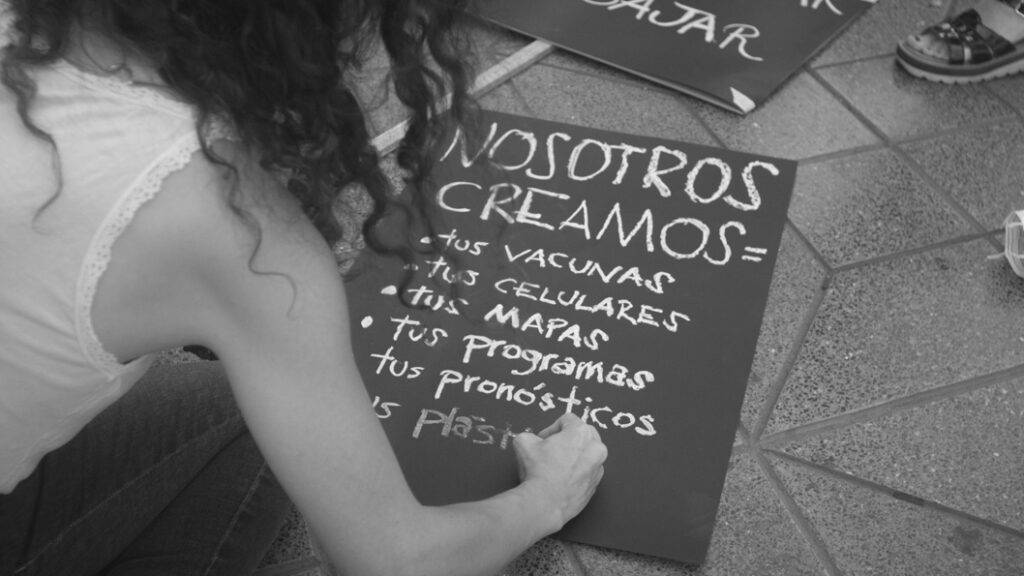 BAJAR
NOSOTROS
CREAMOS=
• tus VACUNAS
• tus CELULARES
• tus MAPAS
• tus programas
tus pronósticos